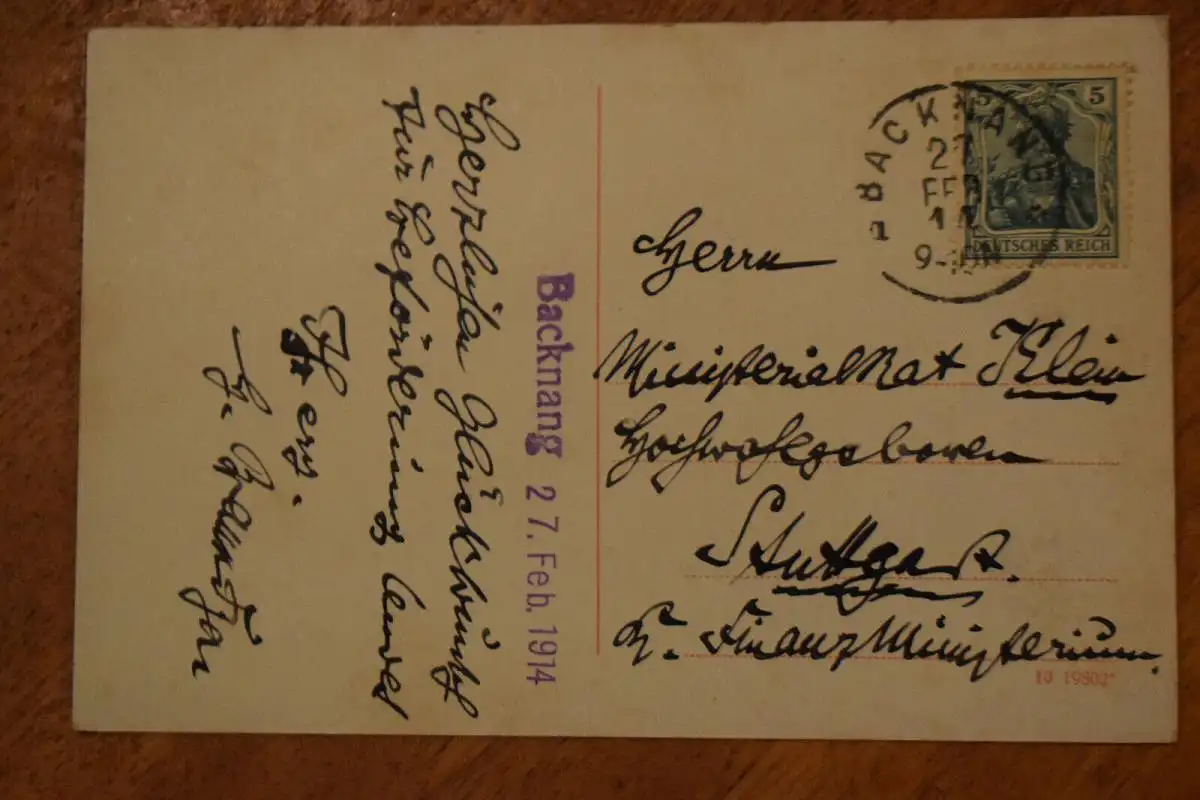 Herzlichen Glückwunsch
zur Beförderung
erg.
Backnang 27. Feb. 1914
BACKNANG
27
FEB
14
9-10N
5 5
DEUTSCHES REICH
Herrn
Ministerialrat Klein
Hochwohlgeboren
Stuttgart.
K. Finanzministerium.
19802